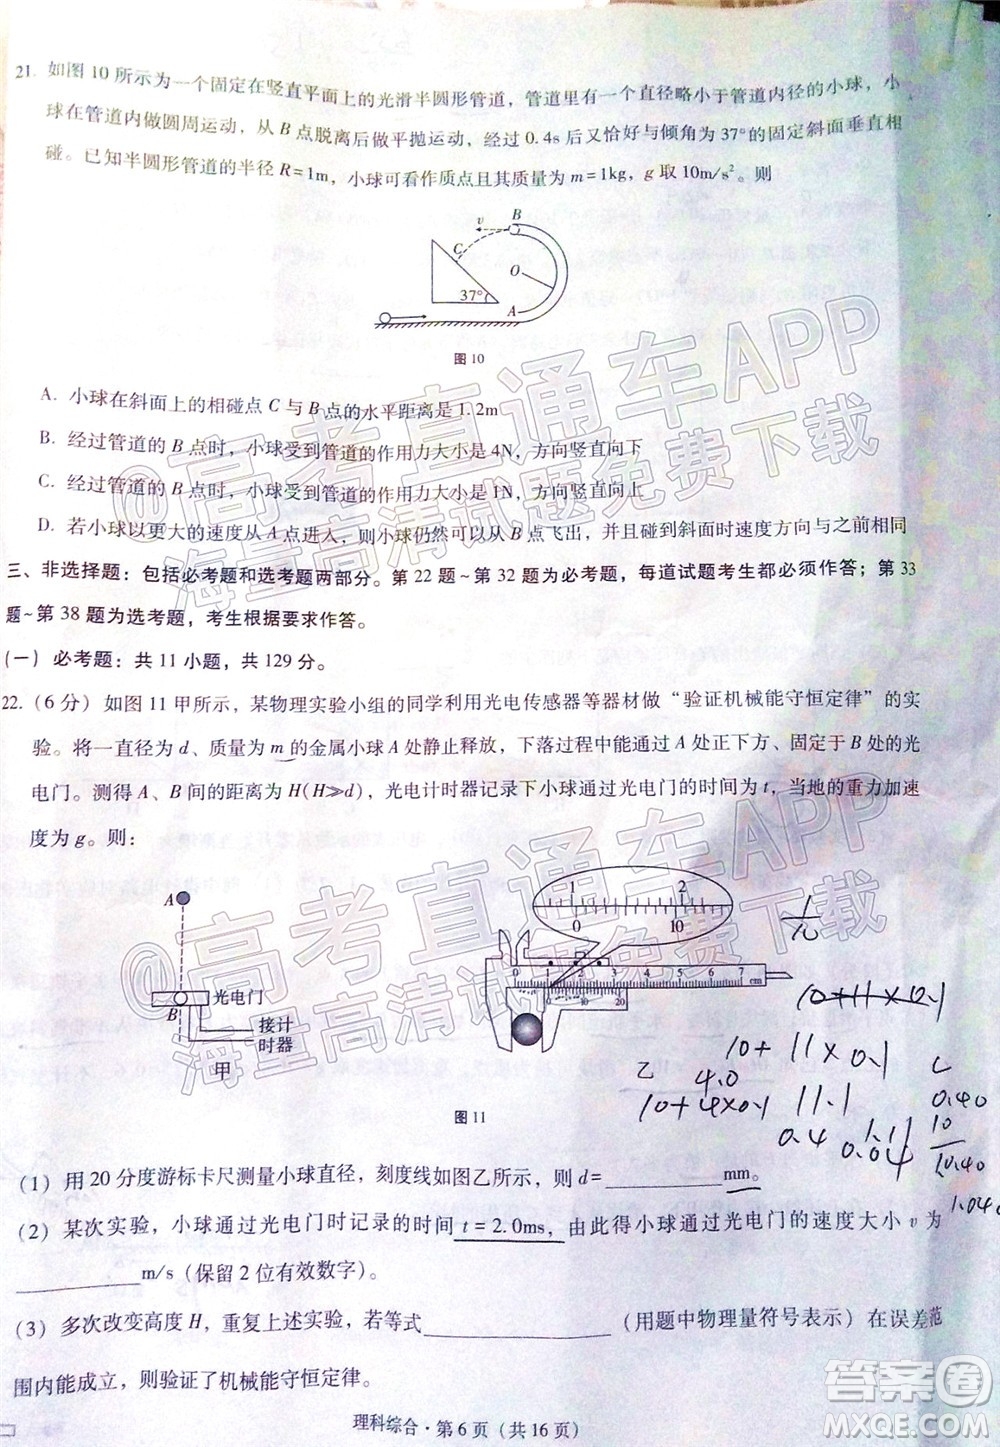 21. 如图 10 所示为一个固定在竖直平面上的光滑半圆形管道，管道里有一个直径略小于管道内径的小球，小
球在管道内做圆周运动，从 B 点脱离后做平抛运动，经过 0.4s 后又恰好与倾角为 37°的固定斜面垂直相
碰。已知半圆形管道的半径 R=1m，小球可看作质点且其质量为 m=1kg，g 取 10m/s²。则
v B
C O
37° A
图 10
A. 小球在斜面上的相碰点 C 与 B 点的水平距离是 1.2m
B. 经过管道的 B 点时，小球受到管道的作用力大小是 4N，方向竖直向下
C. 经过管道的 B 点时，小球受到管道的作用力大小是 1N，方向竖直向上
D. 若小球以更大的速度从 A 点进入，则小球仍然可以从 B 点飞出，并且碰到斜面时速度方向与之前相同
三、非选择题：包括必考题和选考题两部分。第 22 题~第 32 题为必考题，每道试题考生都必须作答；第 33
题~第 38 题为选考题，考生根据要求作答。
(一) 必考题：共 11 小题，共 129 分。
22. (6 分) 如图 11 甲所示，某物理实验小组的同学利用光电传感器等器材做“验证机械能守恒定律”的实
验。将一直径为 d、质量为 m 的金属小球 A 处静止释放，下落过程中能通过 A 处正下方、固定于 B 处的光
电门。测得 A、B 间的距离为 H(H≫d)，光电计时器记录下小球通过光电门的时间为 t，当地的重力加速
度为 g。则：
A
B
光电门
接计
时器
甲
1 2
0 10
0 1 2 3 4 5 6 7 cm
0 10 20
乙
图 11
10+11×0.1
10+11×0.1
4.0
10+4×0.1 11.1
0.4 1.11
0.04
0.40
10
10.40
(1) 用 20 分度游标卡尺测量小球直径，刻度线如图乙所示，则 d=________mm。
(2) 某次实验，小球通过光电门时记录的时间 t=2.0ms，由此得小球通过光电门的速度大小 v 为
________m/s (保留 2 位有效数字)。
(3) 多次改变高度 H，重复上述实验，若等式____________(用题中物理量符号表示) 在误差范
围内能成立，则验证了机械能守恒定律。
理科综合·第 6 页（共 16 页）
@高考直通车APP
海量高清试题免费下载
@高考直通车APP
海量高清试题免费下载
答案圈
MXQE.COM